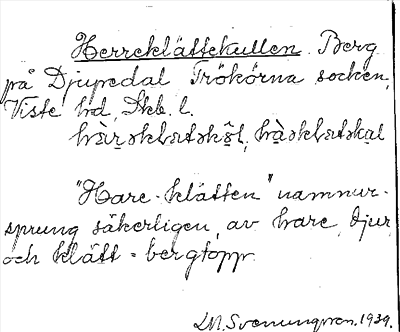 Herreklättekullen. Berg
på Djupedal Trökörna socken,
Viste hd, Skb. l.
"Hare-klätten" namnur-
sprung säkerligen, av hare, djur
och klätt = bergtopp.
LM. Svenungsson. 1939.